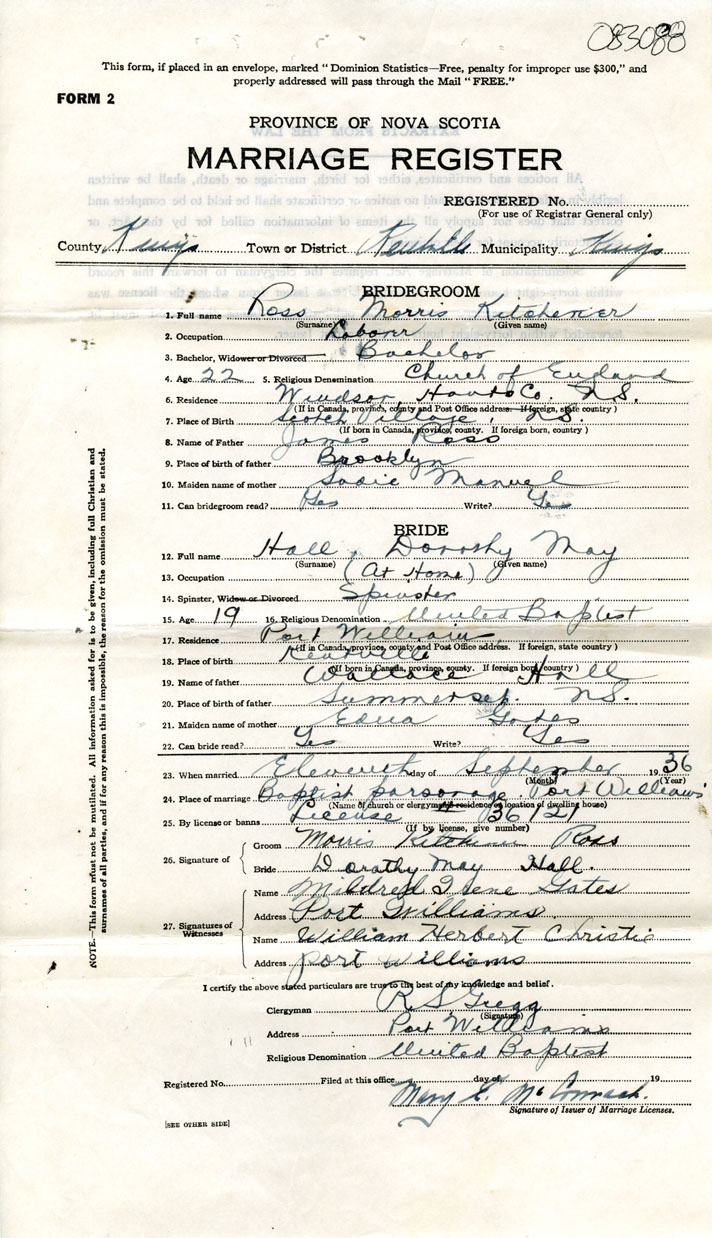 083088
This form, if placed in an envelope, marked "Dominion Statistics—Free, penalty for improper use $300," and
properly addressed will pass through the Mail "FREE."
FORM 2
PROVINCE OF NOVA SCOTIA
MARRIAGE REGISTER
REGISTERED No.
(For use of Registrar General only)
County Kings Town or District Kentville Municipality Kings
BRIDEGROOM
1. Full name Ross Morris Kitchener
(Surname) (Given name)
2. Occupation Laborer
3. Bachelor, Widower or Divorced Bachelor
4. Age 22 5. Religious Denomination Church of England
6. Residence Windsor, Hants Co. N.S.
(If in Canada, province, county and Post Office address. If foreign, state country)
7. Place of Birth Scotch Village, N.S.
(If born in Canada, province, county. If foreign born, country)
8. Name of Father James Ross
9. Place of birth of father Brooklyn
10. Maiden name of mother Sadie Manuel
11. Can bridegroom read? Yes Write? Yes
BRIDE
12. Full name Hall, Dorothy May
(Surname) (Given name)
13. Occupation (At Home)
14. Spinster, Widow or Divorced Spinster
15. Age 19 16. Religious Denomination United Baptist
17. Residence Port Williams
(If in Canada, province, county and Post Office address. If foreign, state country)
18. Place of birth Kentville
(If born in Canada, province, county. If foreign born, country)
19. Name of father Wallace Hall
20. Place of birth of father Summerset, N.S.
21. Maiden name of mother Edna Gates
22. Can bride read? Yes Write? Yes
23. When married Eleventh day of September 1936
(Month) (Year)
24. Place of marriage Baptist parsonage, Port Williams
(Name of church or clergyman's residence or location of dwelling house)
25. By license or banns License 36121
(If by license, give number)
26. Signature of
Groom Morris Kitchener Ross
Bride Dorathy May Hall.
27. Signatures of Witnesses
Name Mildred Irene Gates
Address Port Williams.
Name William Herbert Christie
Address port williams
I certify the above stated particulars are true to the best of my knowledge and belief.
Clergyman R S Gregg
(Signature)
Address Port Williams
Religious Denomination United Baptist
Registered No. Filed at this office day of 19
Mary E. McCormack.
Signature of Issuer of Marriage Licenses.
[SEE OTHER SIDE]
NOTE.—This form must not be mutilated. All information asked for is to be given, including full Christian and
surnames of all parties, and if for any reason this is impossible, the reason for the omission must be stated.